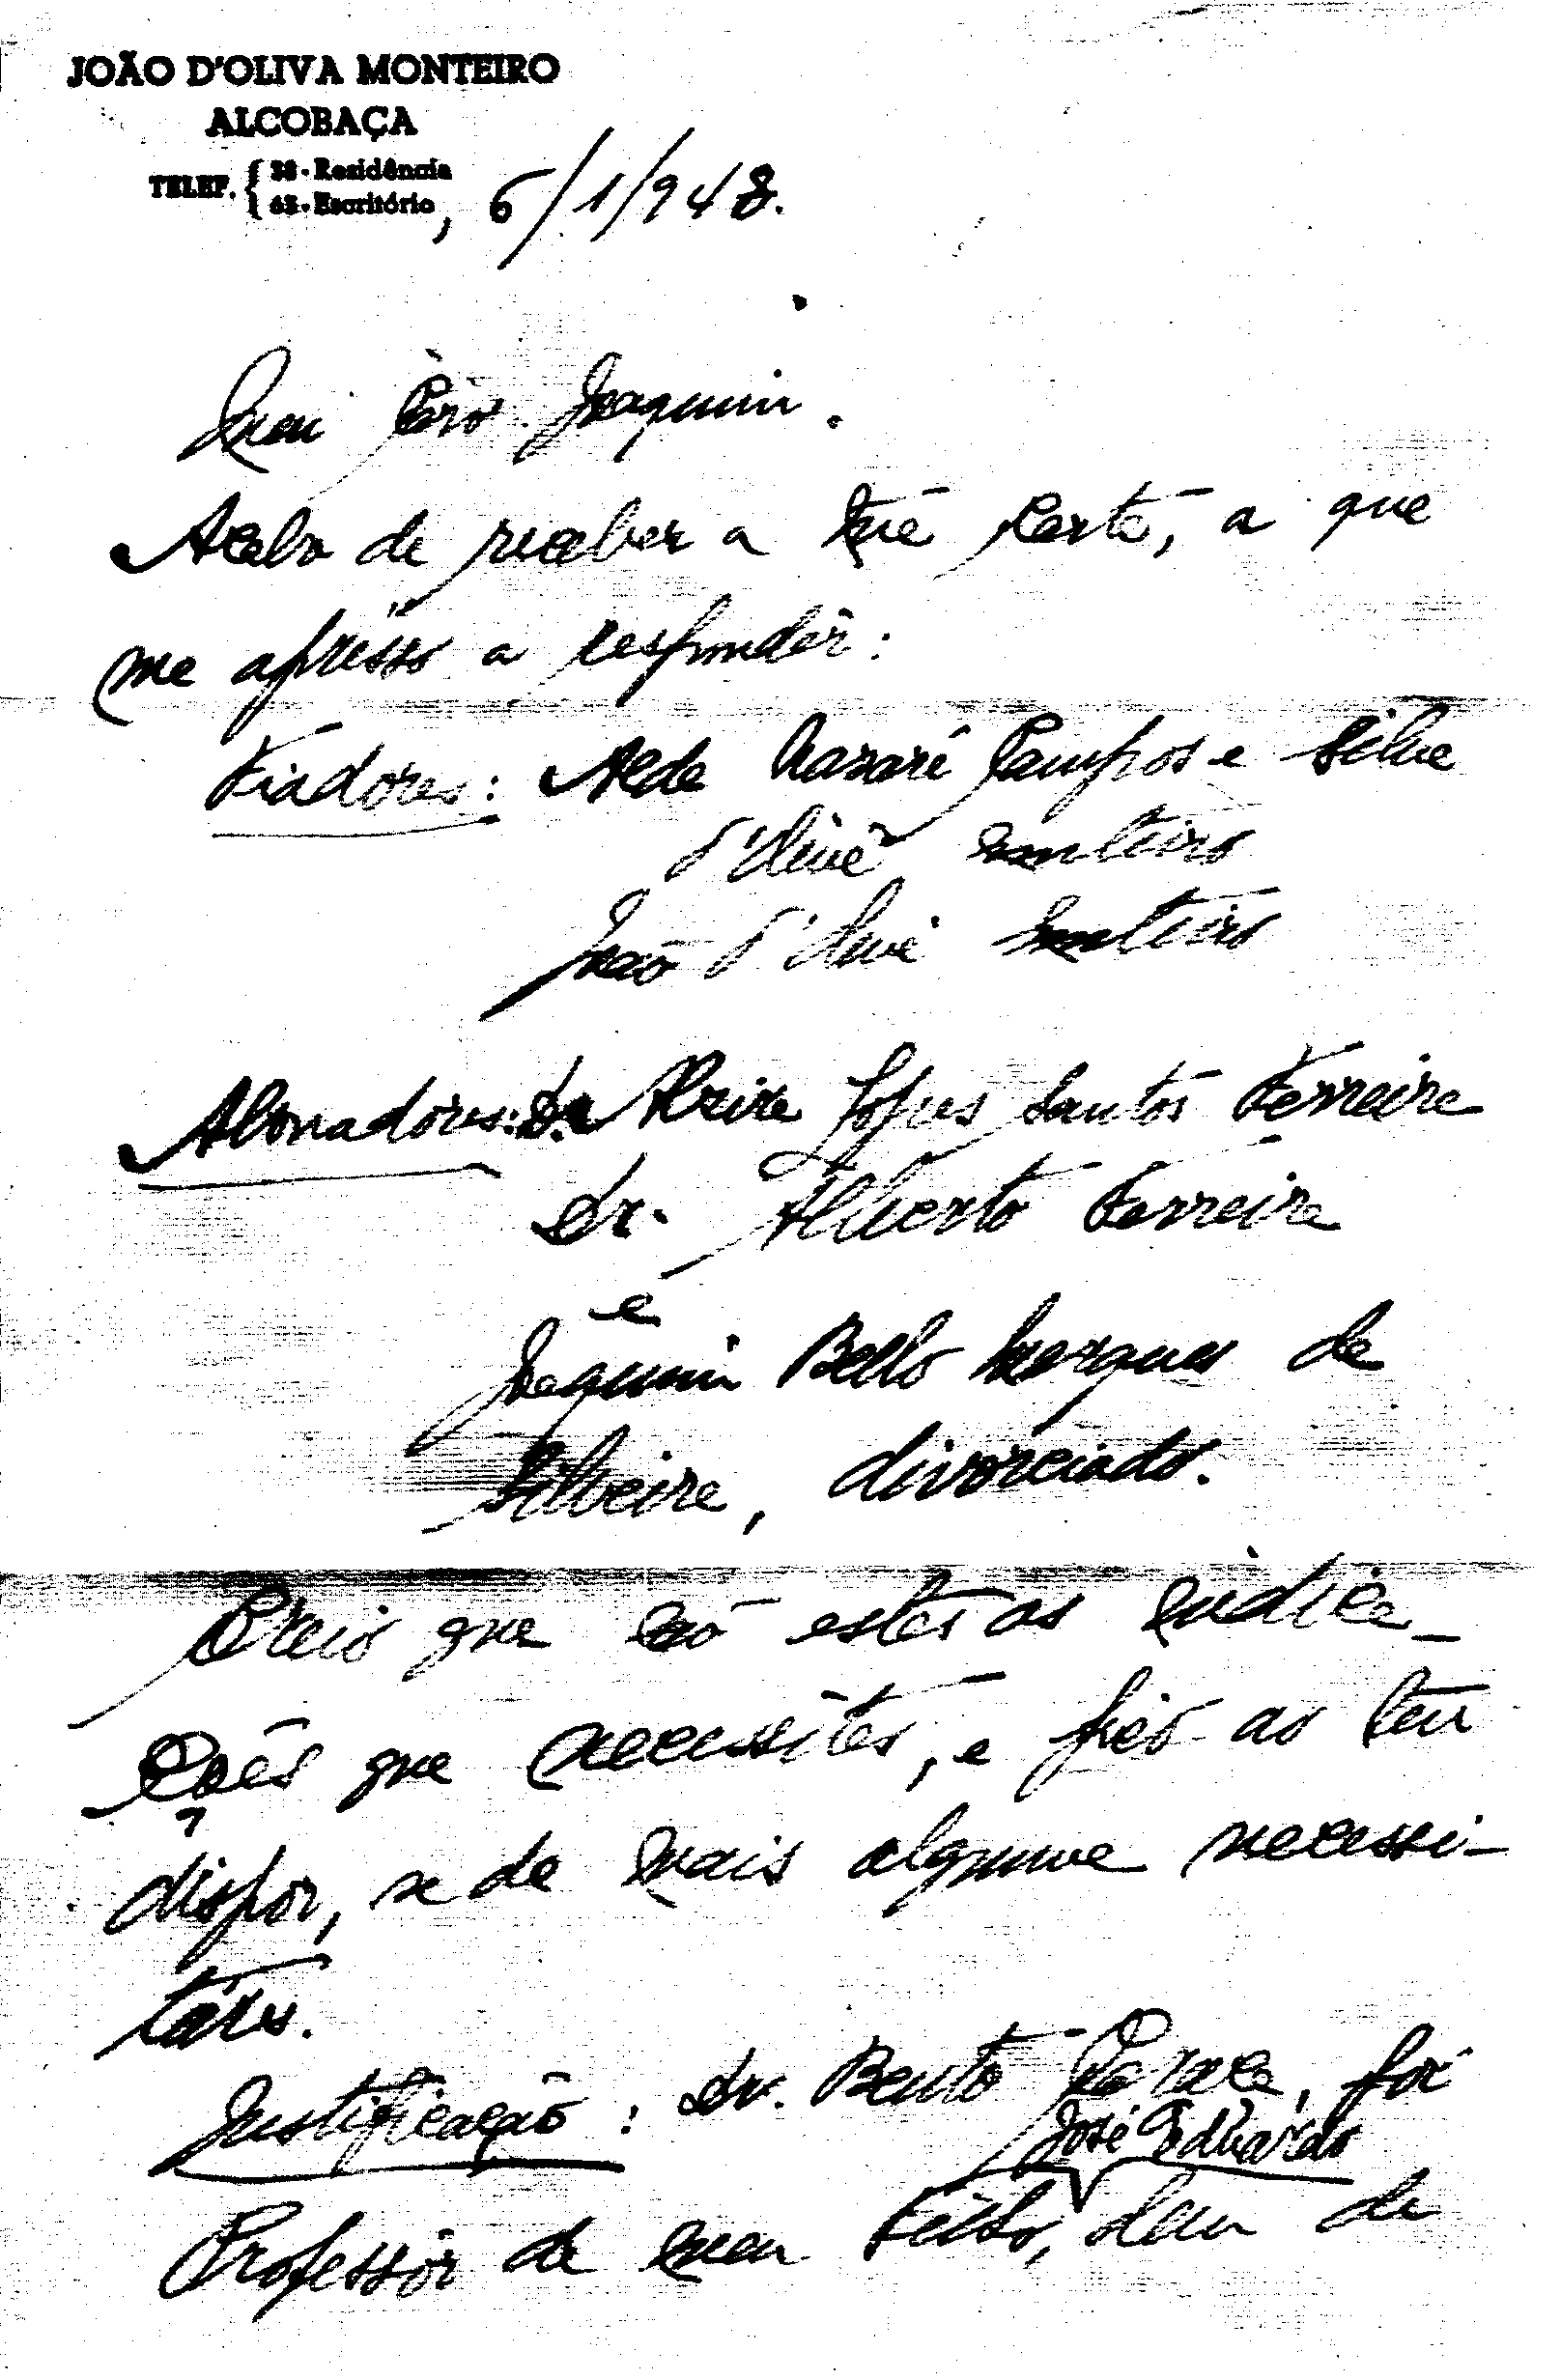 JOÃO D'OLIVA MONTEIRO
ALCOBAÇA
TELEF. { 38-Residência
63-Escritório, 6/1/948.
Meu Caro Joaquim.
Acabo de receber a tua carta, a que
me apresso a responder:
Fiadores: Alda Nazaré Campos e Silva
d'Oliva Monteiro
João d'Oliva Monteiro
Abonadores: D.a Alzira Lopes Santos Ferreira
Dr. Alberto Ferreira
e
Joaquim Bello Marques de
Silveira, divorciado.
Creio que são estas as indica-
ções que necessitas, e fico ao teu
dispor, se de mais alguma necessi-
tares.
Justificação: Dr. Bento Caraça, foi
José Eduardo
Professor de meu Filho, além de